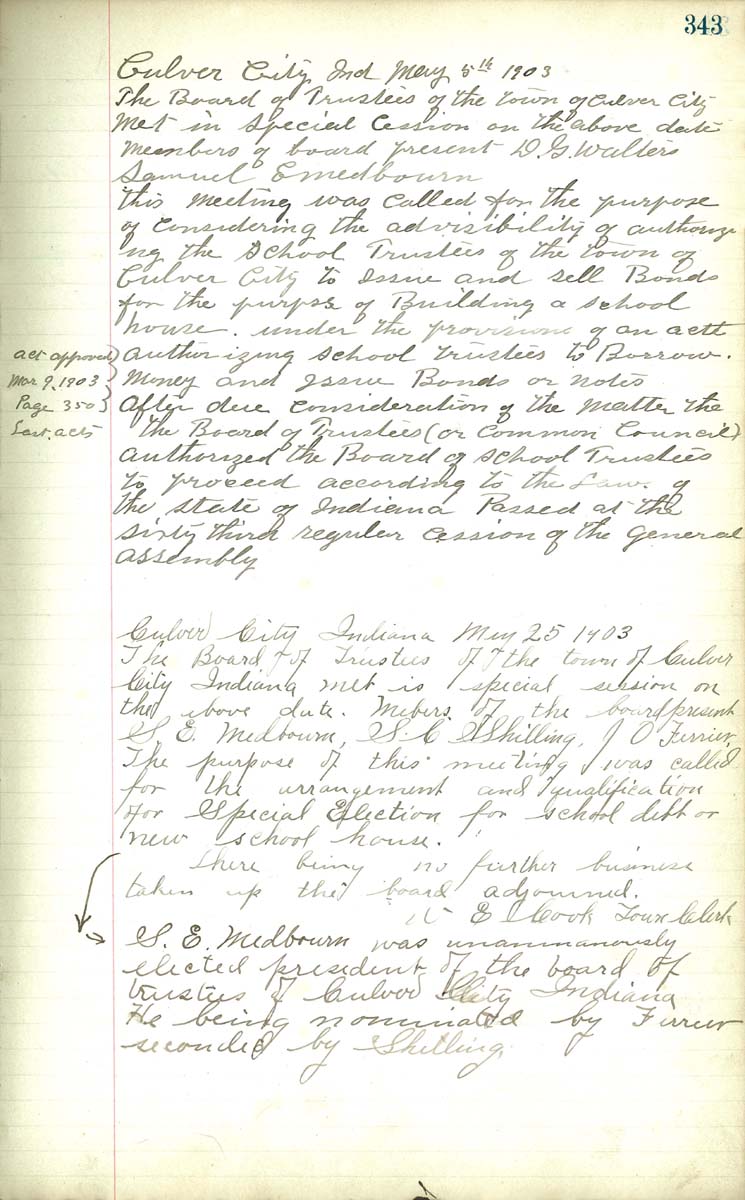 343
Culver City Ind May 5th 1903
The Board of Trustees of the town of Culver City
Met in Special Cession on the above date
Members of board present D. G. Walters
Samuel E Medbourn
this Meeting was called for the purpose
of Considering the advisibility of authorize
ng the School Trustees of the town of
Culver City to Issue and sell Bonds
for the purpse of Building a school
house. under the provisions of an actt
act approved
authorizing school trustees to Borrow.
Mar 9, 1903
Money and Issue Bonds or notes
Page 350
After due Consideration of the Matter the
Last. acts
the Board of Trustees (or Common Council)
authorized the Board of School Trustees
to proceed according to the Law. of
the state of Indiana Passed at the
sixty third regular Cession of the General
assembly
Culver City Indiana May 25 1903
The Board of Trustees of the town of Culver
City Indiana met is special session on
the above date. Mebers. of the board present
S. E. Medbourn, S. C Shilling, J O Ferrier,
The purpose of this meeting was called
for the arrangement and qualification
for Special Election for school debt or
new school house.
There being no further business
taken up the board adjourned.
E Cook Town Clerk
S. E. Medbourn was unanmanously
elected president of the board of
trustees of Culver City Indiana
He being nominated by Ferrier
seconded by Shilling